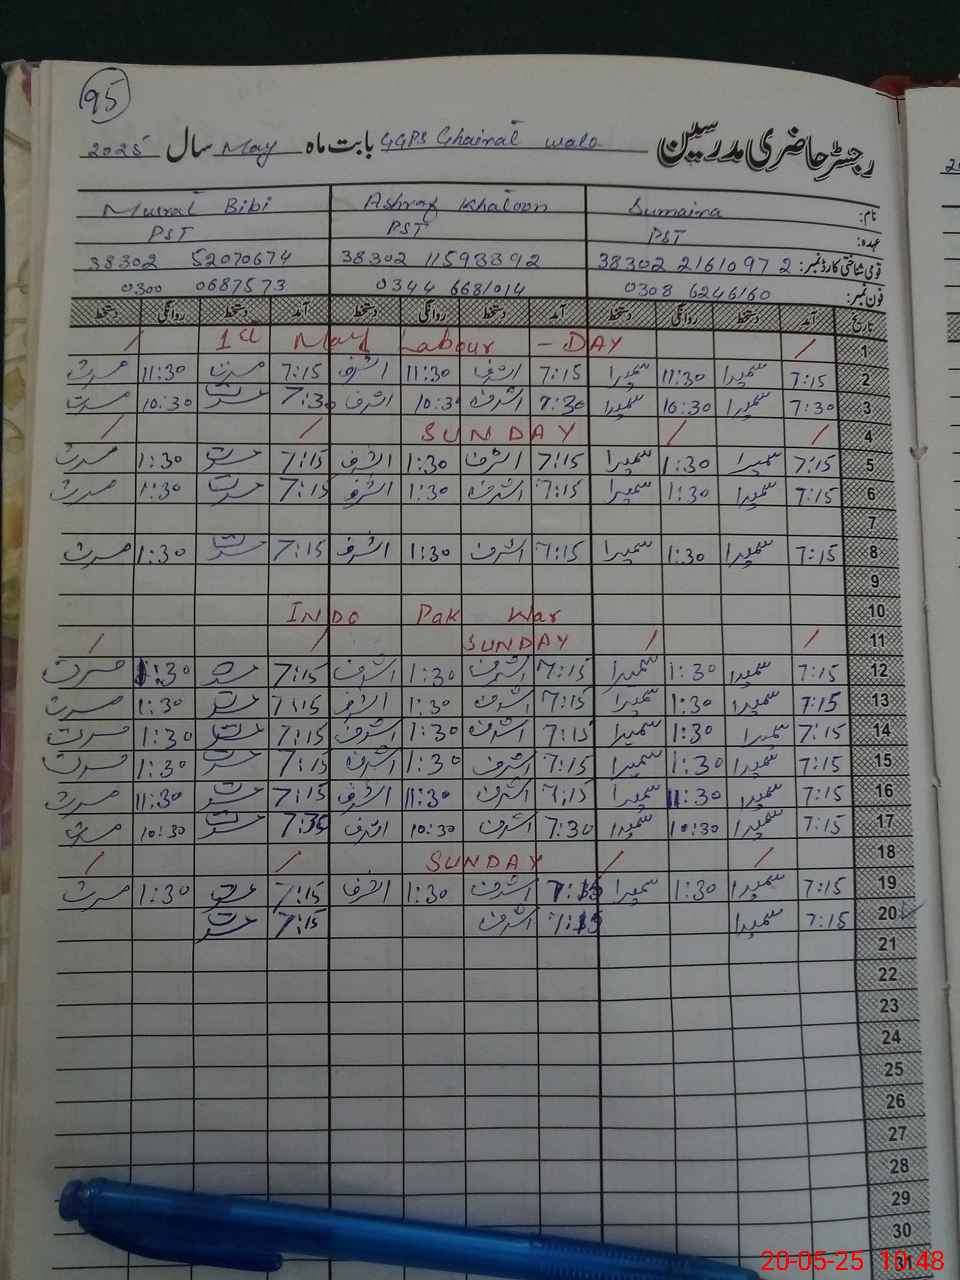 95
رجسٹر حاضری مدرسین GGPS Ghairat wala بابت ماہ May سال 2025
نام: Sumaira Ashraf Khatoon Musrat Bibi
عہدہ: PST PST PST
قومی شناختی کارڈ نمبر: 38302 2161097 2 38302 11593392 38302 52070674
فون نمبر: 0308 6246160 0344 6681014 0300 0687573
تاریخ آمد دستخط روانگی دستخط آمد دستخط روانگی دستخط آمد دستخط روانگی دستخط
1 1st May Labour - DAY
2 7:15 سمیرا 11:30 سمیرا 7:15 اشرف 11:30 اشرف 7:15 مسرت 11:30 مسرت
3 7:30 سمیرا 10:30 سمیرا 7:30 اشرف 10:30 اشرف 7:30 مسرت 10:30 مسرت
4 SUNDAY
5 7:15 سمیرا 1:30 سمیرا 7:15 اشرف 1:30 اشرف 7:15 مسرت 1:30 مسرت
6 7:15 سمیرا 1:30 سمیرا 7:15 اشرف 1:30 اشرف 7:15 مسرت 1:30 مسرت
7
8 7:15 سمیرا 1:30 سمیرا 7:15 اشرف 1:30 اشرف 7:15 مسرت 1:30 مسرت
9
10 INDO Pak War
11 SUNDAY
12 7:15 سمیرا 1:30 سمیرا 7:15 اشرف 1:30 اشرف 7:15 مسرت 1:30 مسرت
13 7:15 سمیرا 1:30 سمیرا 7:15 اشرف 1:30 اشرف 7:15 مسرت 1:30 مسرت
14 7:15 سمیرا 1:30 سمیرا 7:15 اشرف 1:30 اشرف 7:15 مسرت 1:30 مسرت
15 7:15 سمیرا 1:30 سمیرا 7:15 اشرف 1:30 اشرف 7:15 مسرت 1:30 مسرت
16 7:15 سمیرا 11:30 سمیرا 7:15 اشرف 11:30 اشرف 7:15 مسرت 11:30 مسرت
17 7:15 سمیرا 10:30 سمیرا 7:30 اشرف 10:30 اشرف 7:30 مسرت 10:30 مسرت
18 SUNDAY
19 7:15 سمیرا 1:30 سمیرا 7:15 اشرف 1:30 اشرف 7:15 مسرت 1:30 مسرت
20 7:15 سمیرا 7:15 اشرف 7:15 مسرت
21
22
23
24
25
26
27
28
29
30
31
20-05-25 10:48